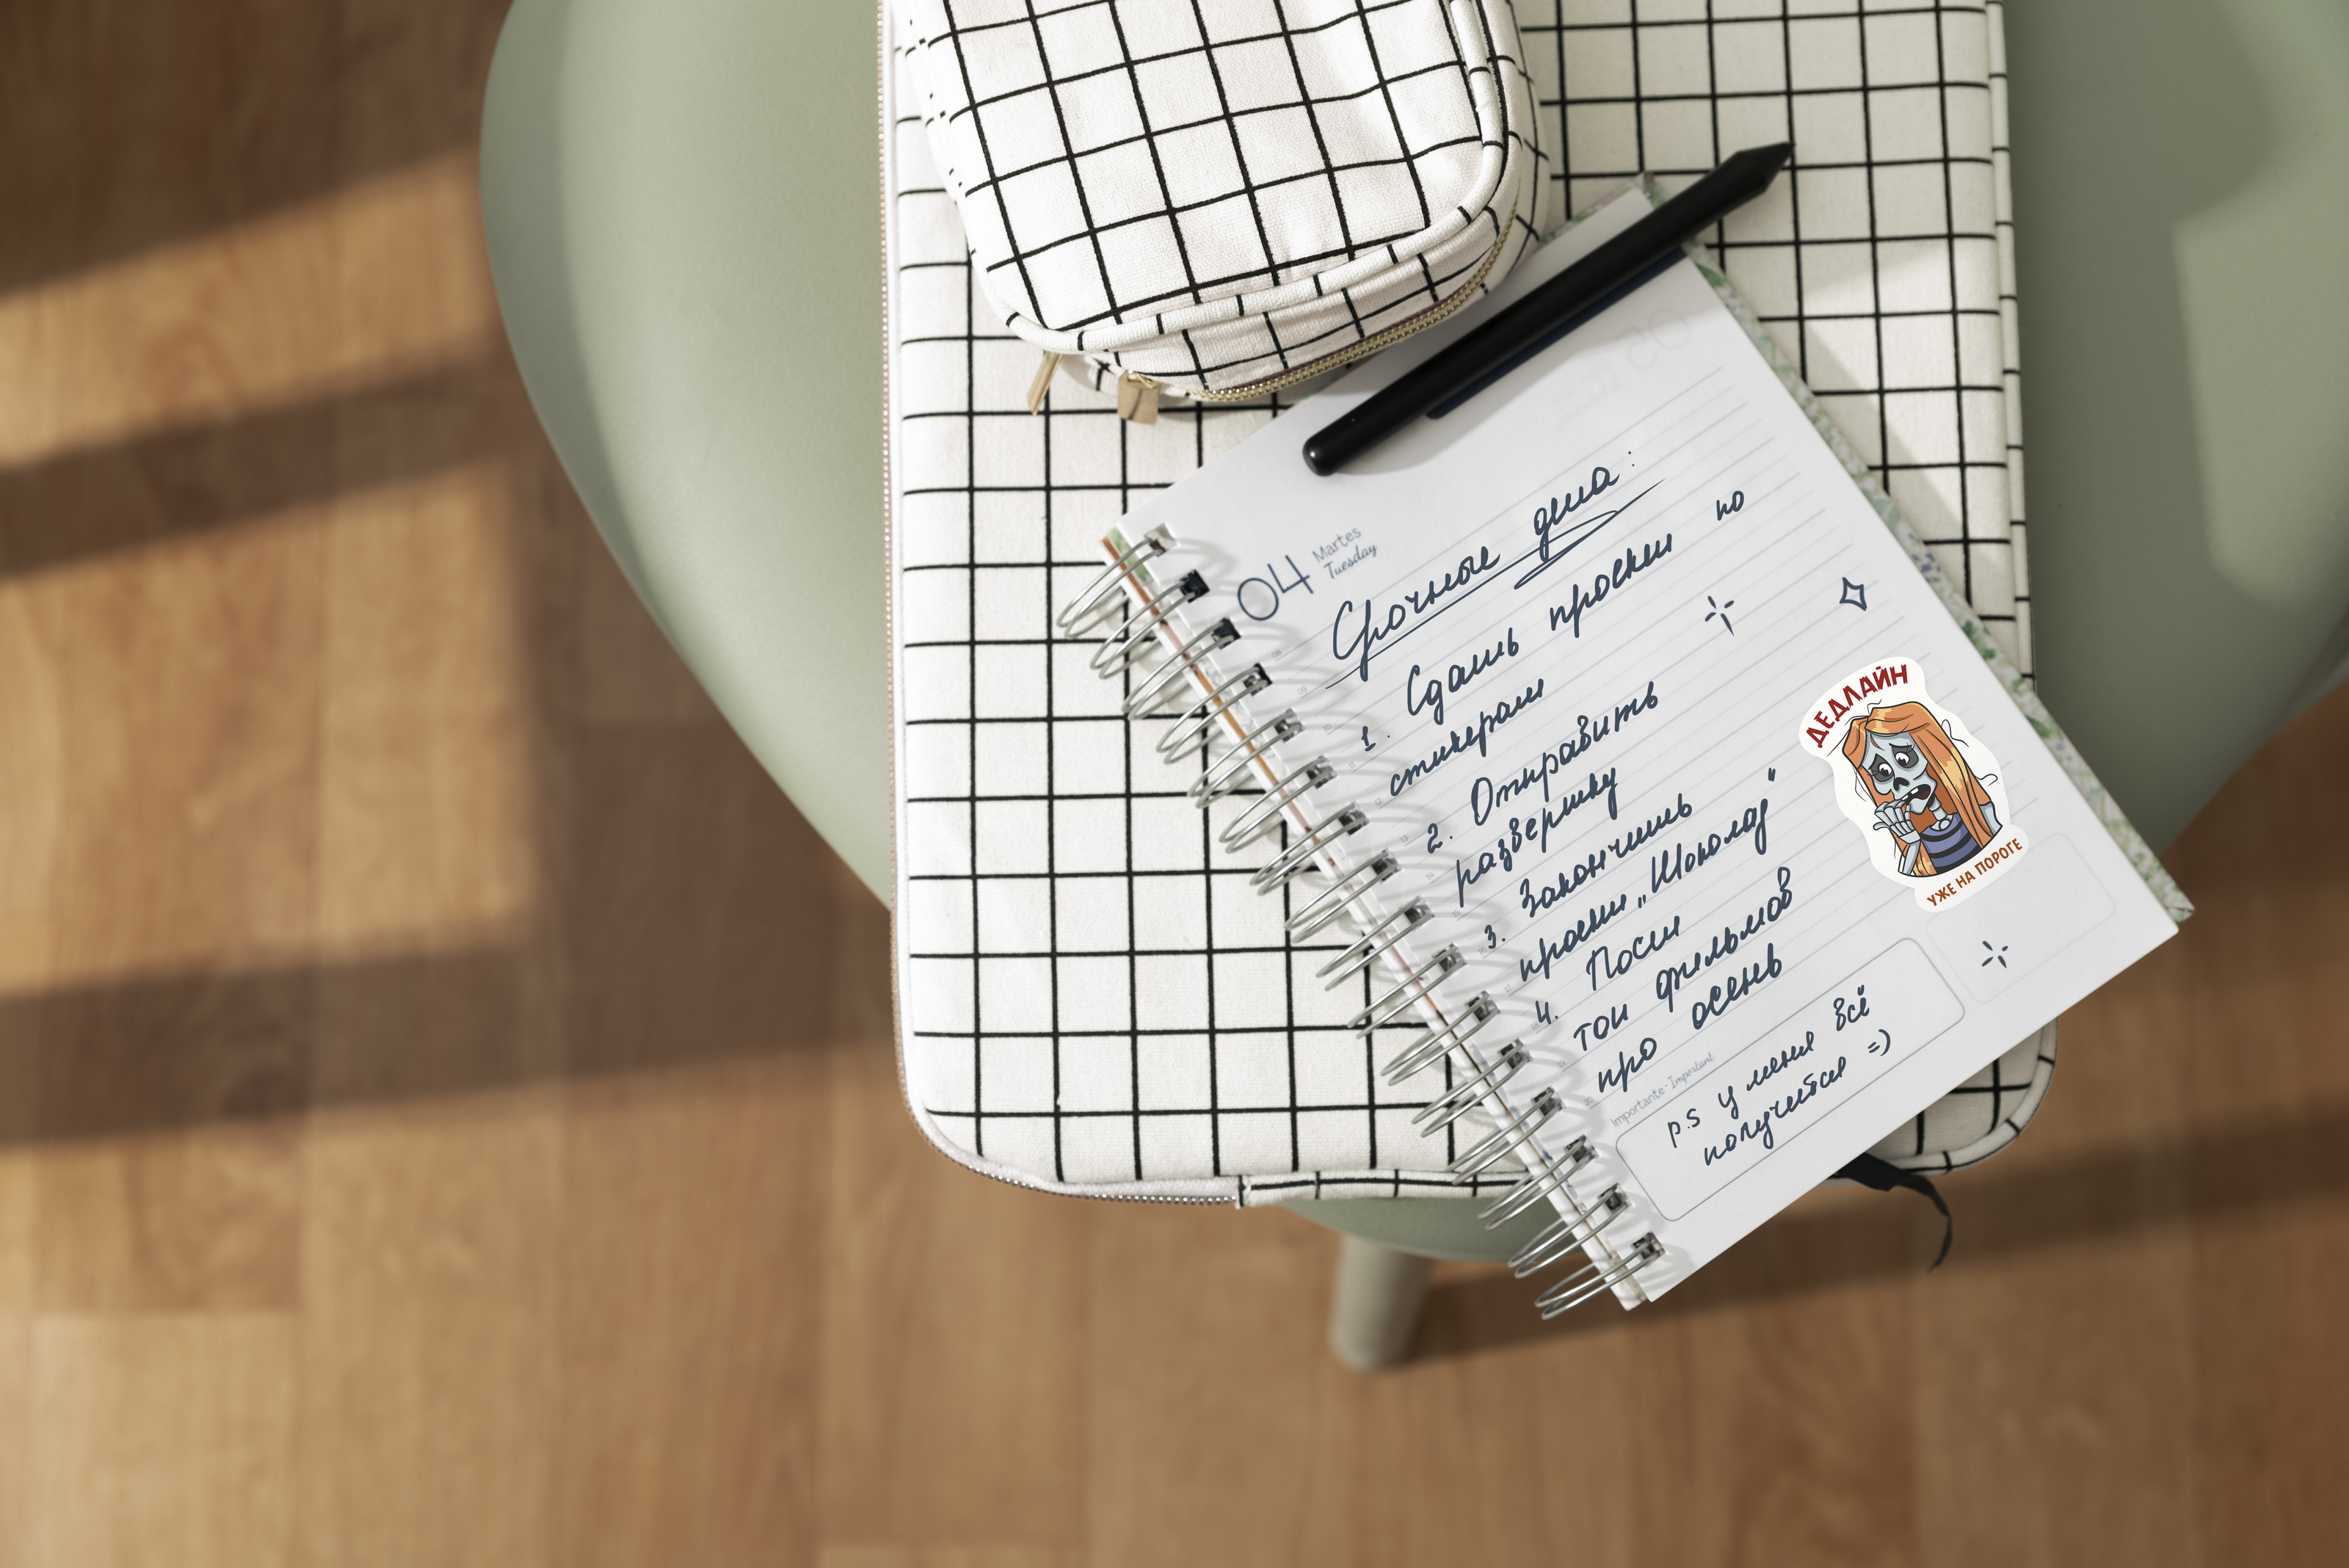 04 Martes
Tuesday
Срочные дела:
1. Сдать проект по
стикерам
2. Отправить
развертку
3. Закончить
проект „Шоколад"
4. Пост
топ фильмов
про осень
ДЕДЛАЙН
УЖЕ НА ПОРОГЕ
Importante · Important
p.s у меня всё
получится =)